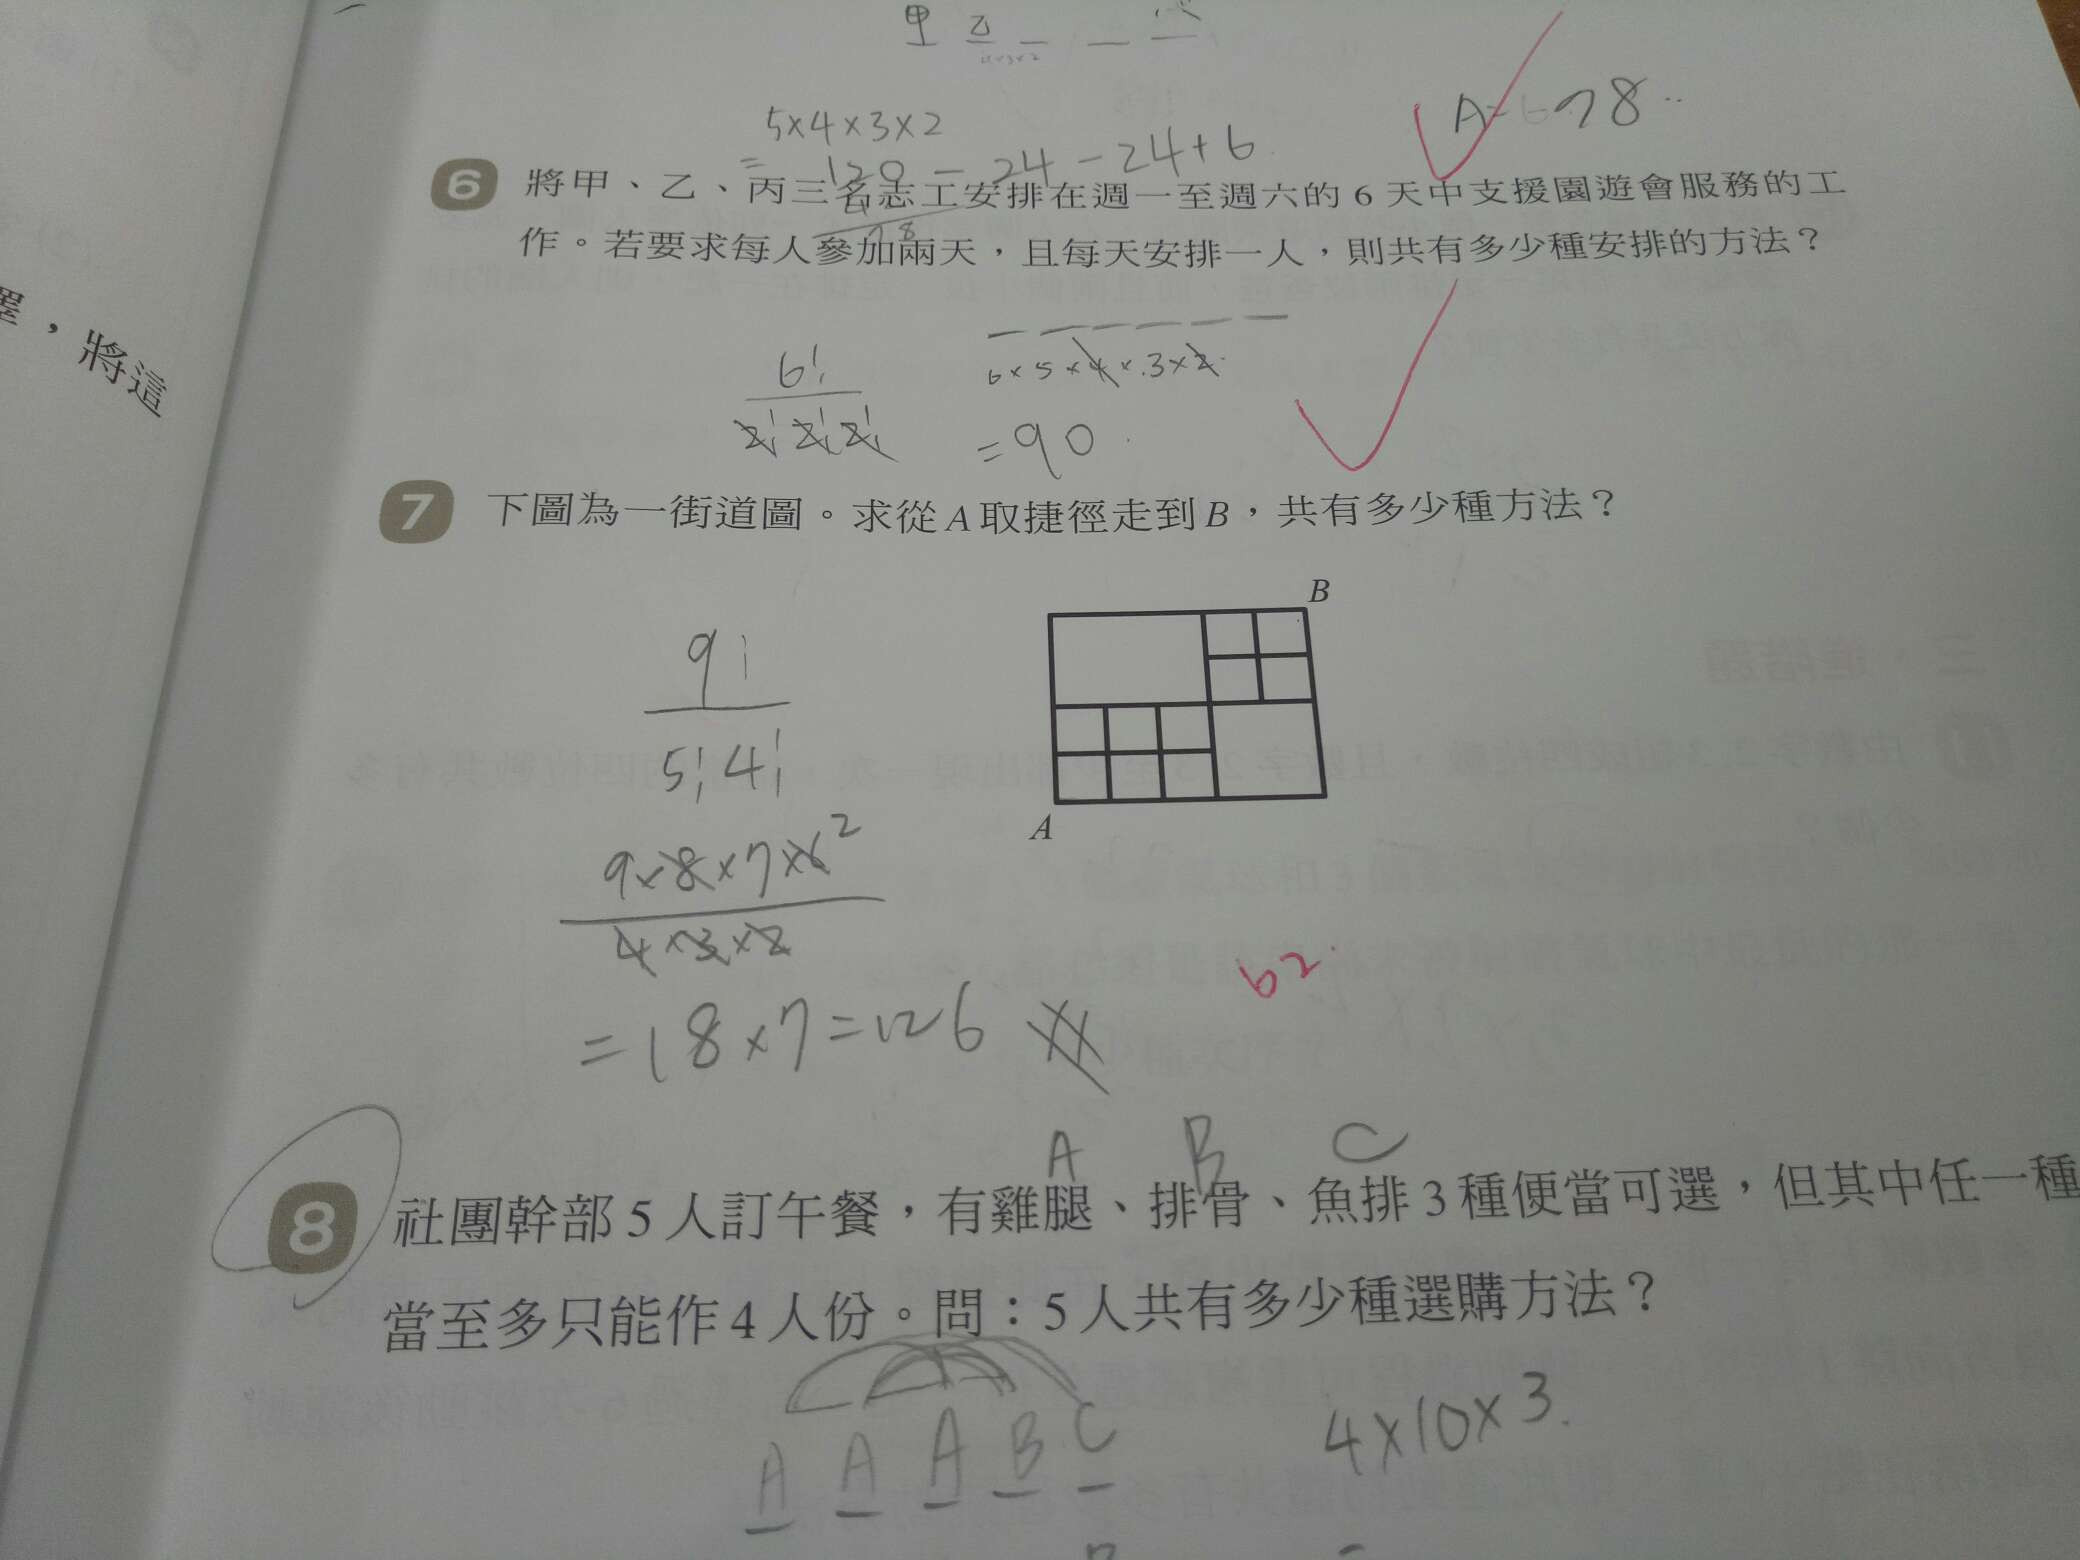 甲 乙
5×4×3×2
A= 78
= 120 - 24 - 24 + 6
6 將甲、乙、丙三名志工安排在週一至週六的 6 天中支援園遊會服務的工
作。若要求每人參加兩天，且每天安排一人，則共有多少種安排的方法？
78
擇，將這
6!
2!2!2!
6×5×4×3×2
=90
7 下圖為一街道圖。求從A取捷徑走到B，共有多少種方法？
B
A
9!
5!4!
9×8×7×6 2
4×3×2
=18×7=126
62
A B C
8 社團幹部 5 人訂午餐，有雞腿、排骨、魚排 3 種便當可選，但其中任一種
當至多只能作 4 人份。問：5 人共有多少種選購方法？
A A A B C
4×10×3